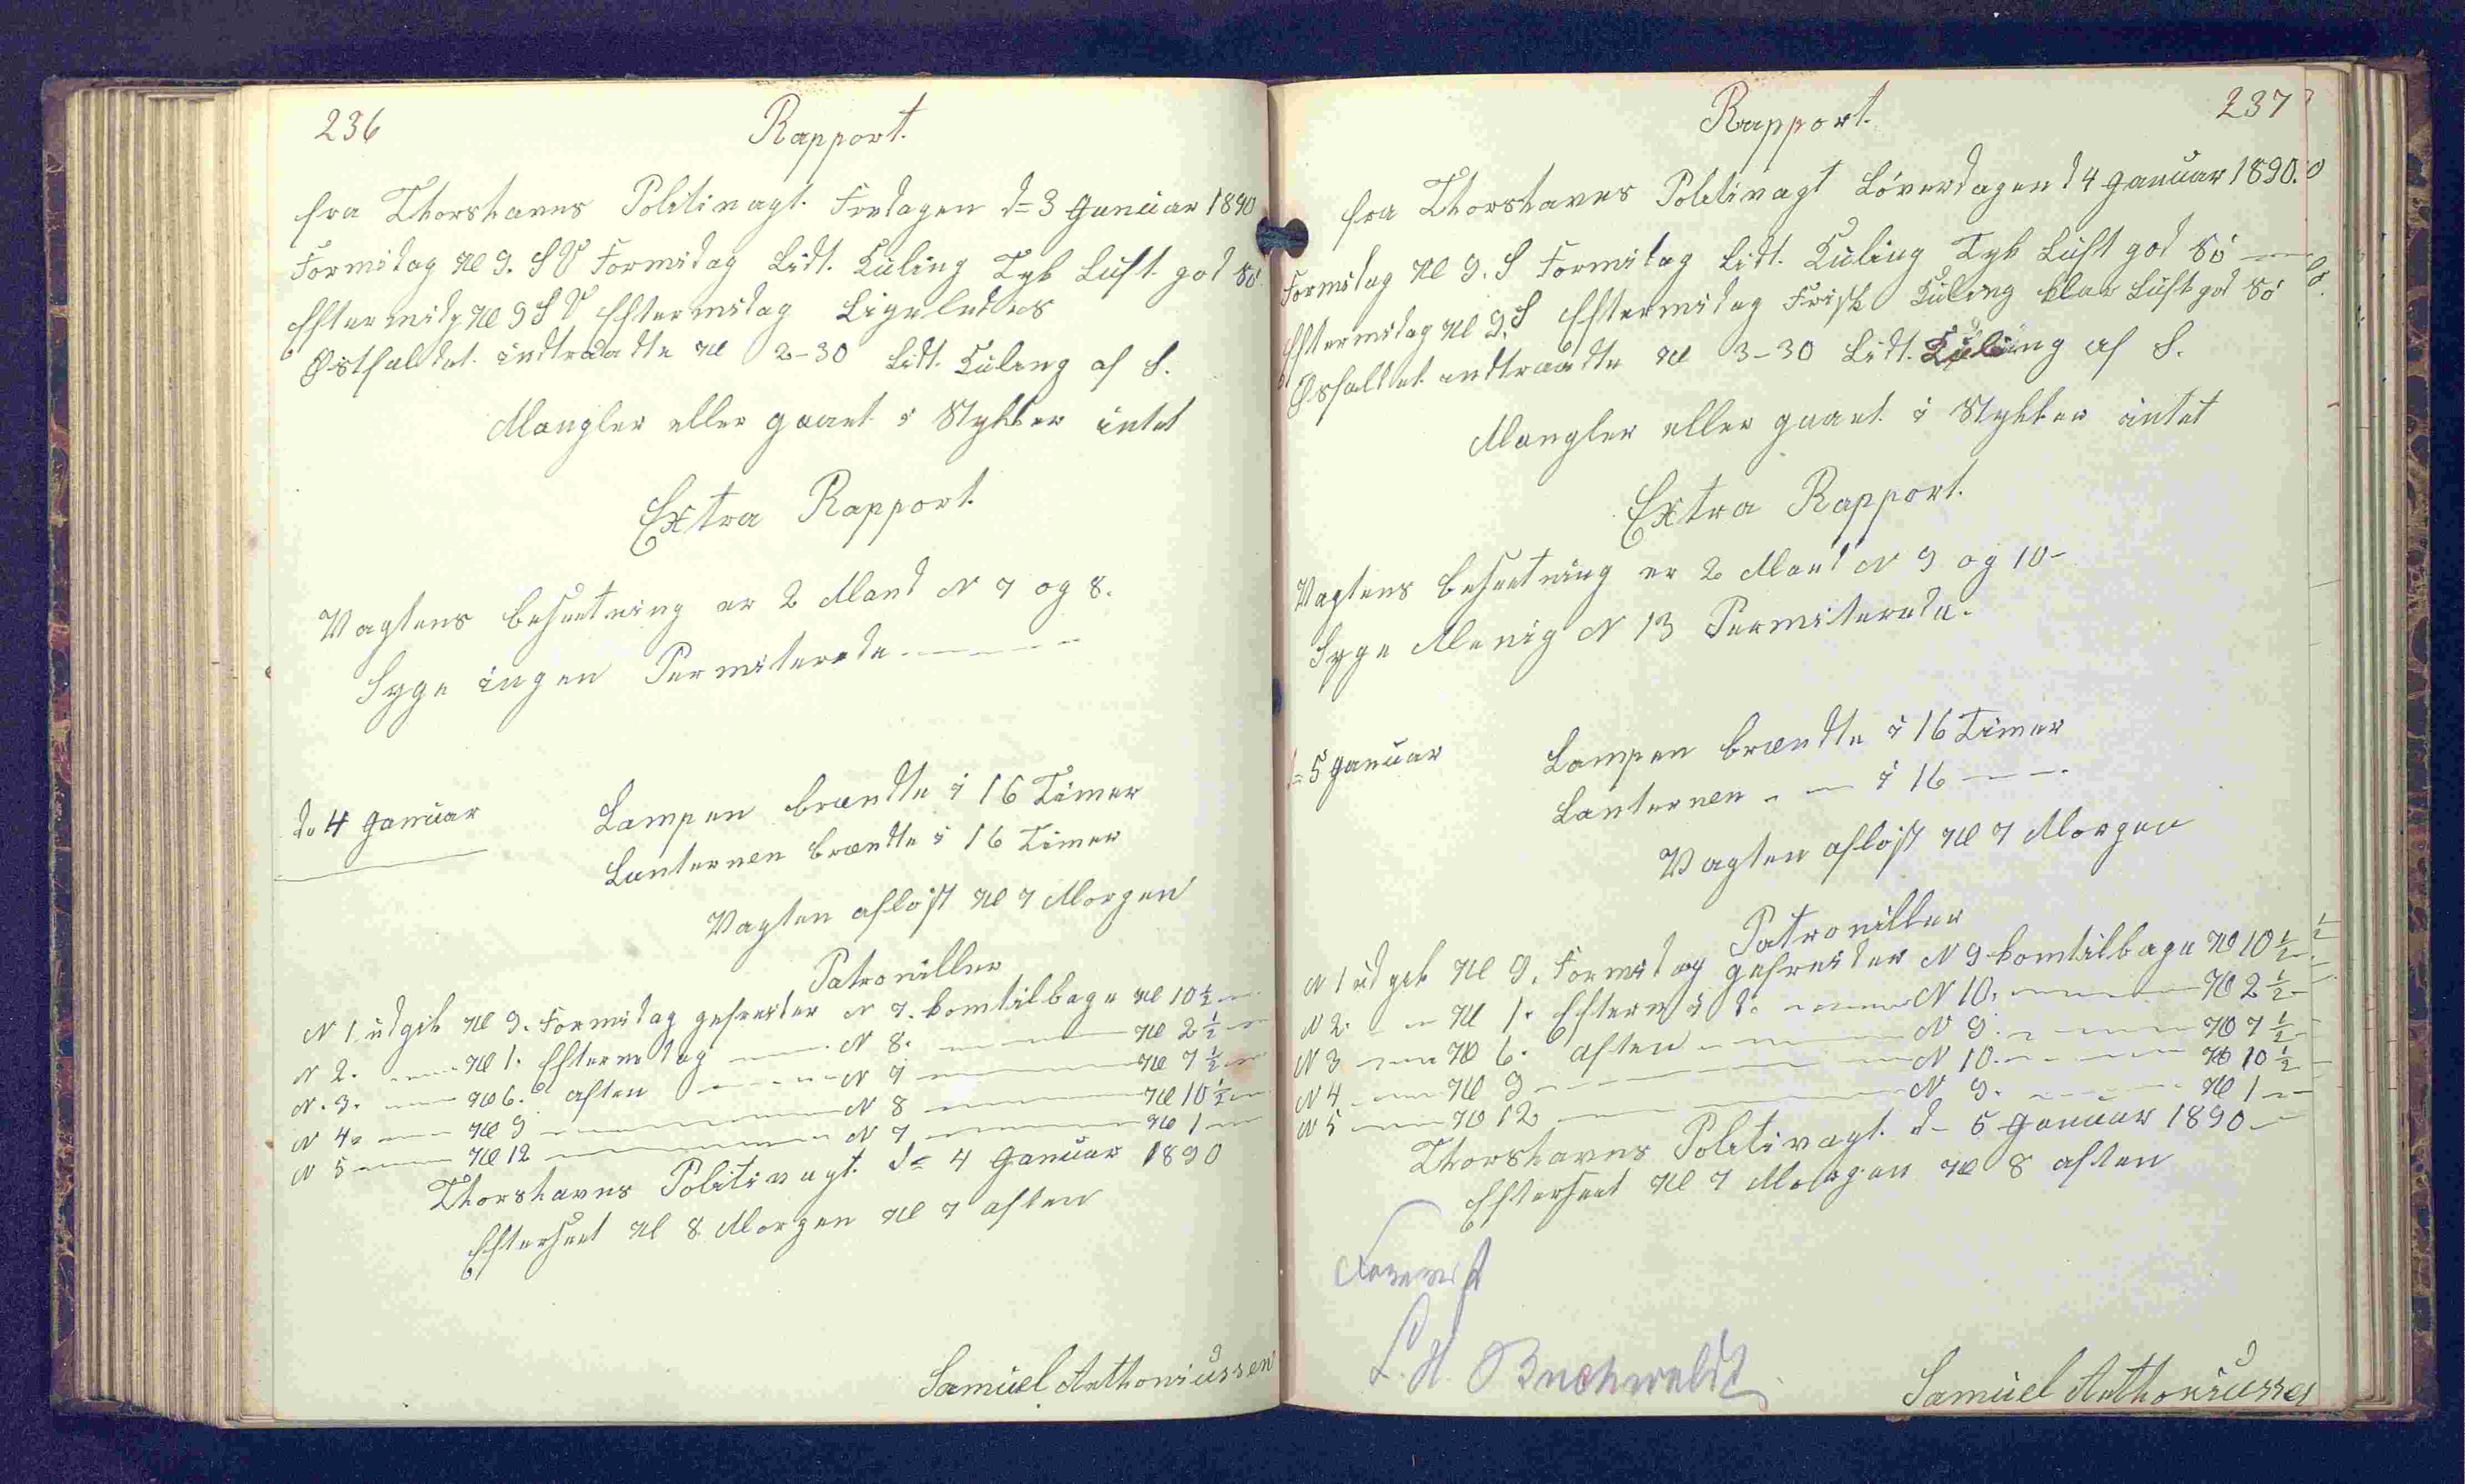 236
Rapport.
fra Thorshavns Politivagt. Fredagen d= 3 Januar 1890
Formidag Kl 9. S V Formidag Lidt. Kuling Tyk Luft god Sö.
Eftermidg Kl 9 S V Eftermidag Ligeledes
Østfaldet. indtraadte Kl 2-30 Lidt. Kuling af S.
Mangler eller gaaet i Stykker intet
Extra Rapport.
Vagtens besætning er 2 Mand N 7 og 8.
Syge ingen Permiterede
d. 4 Januar
Lampen brændte i 16 Timer
Lanternen brændte i 16 Timer
Vagten aflöst Kl 7 Morgen
Patroniller
N 1 udgik Kl 9. Formidag gefreider N 7. komtilbage Kl 10 ½
N 2. — Kl 1. Eftermidag — N 8. — Kl 2 ½
N. 3. — Kl 6. aften — N 7 — Kl 7 ½
N 4. — Kl 9 — N 8 — Kl 10 ½
N 5 — Kl 12 — N 7 — Kl 1
Thorshavns Politivagt. d= 4 Januar 1890
Efterseet Kl 8. Morgen Kl 7 aften
Samuel Anthoniussen
237
Rapport.
fra Thorshavns Politivagt Löverdagen d 4 Januar 1890.
Formidag Kl 9. S Formidag Lidt. Kuling Tyk Luft god Sö
Eftermidag Kl 9. S Eftermidag Frisk Kuling klar Luft god Sö
Øsfaldet indtraadte Kl 3-30 Lidt. Kuling af S.
Mangler eller gaaet i Stykker intet
Extra Rapport.
Vagtens besætning er 2 Mand N 9 og 10-
Syge Menig N 13 Permiterede.
d= 5 Januar
Lampen brændte i 16 Timer
Lanternen - — i 16 — -.
Vagten aflöst Kl 7 Morgen
Patroniller
N 1 udgik Kl 9. Formidag gefreider N 9 komtilbage Kl 10 ½
N 2. — Kl 1. Efterm i d. — N 10. — Kl 2 ½
N 3 — Kl 6. aften — N 9. — Kl 7 ½
N 4 — Kl 9 — N 10. — Kl 10 ½
N 5 — Kl 12 — N 9. — Kl 1
Thorshavns Politivagt. d- 5 Januar 1890
Efterseet Kl 7 Morgen Kl 8 aften
L. H. Buchwaldt
Samuel Anthoniussen